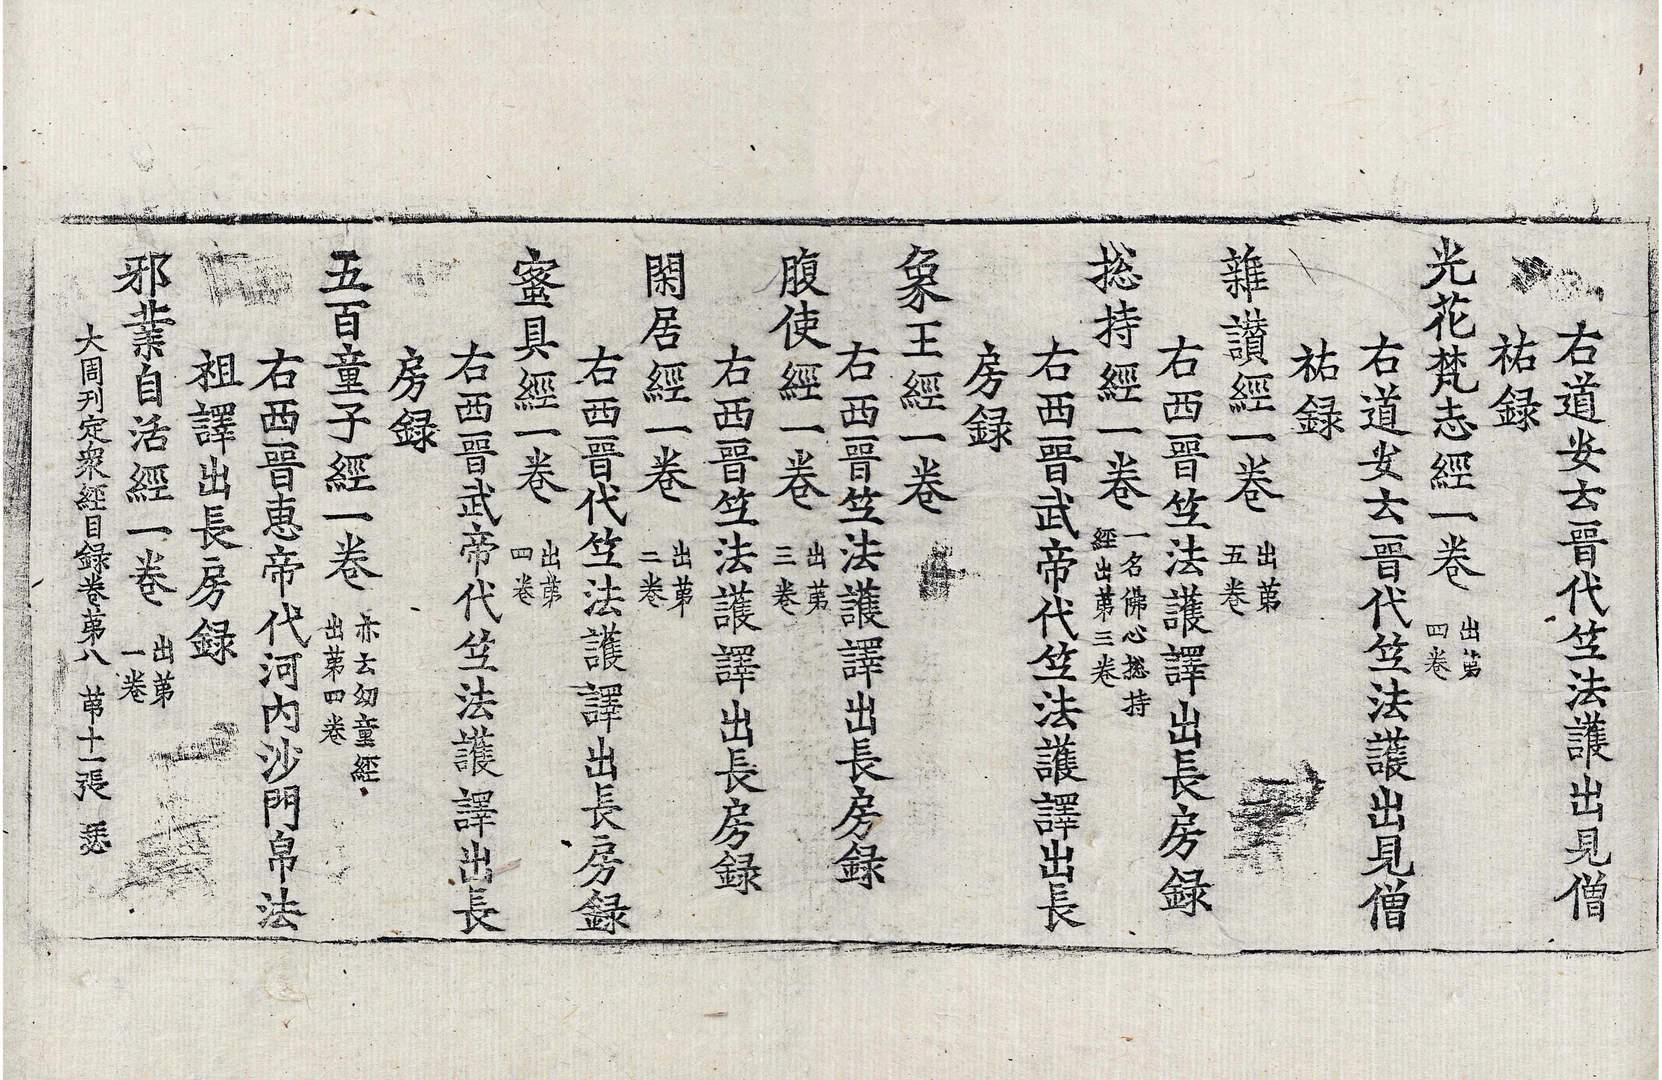 右道安云晉代竺法護出見僧
祐録
光花梵志經一卷 出第四卷
右道安云晉代竺法護出見僧
祐録
雜讃經一卷 出第五卷
右西晉竺法護譯出長房録
揔持經一卷 一名佛心揔持經出第三卷
右西晉武帝代竺法護譯出長
房録
象王經一卷
右西晉竺法護譯出長房録
腹使經一卷 出第三卷
右西晉竺法護譯出長房録
閑居經一卷 出第二卷
右西晉代竺法護譯出長房録
蜜具經一卷 出第四卷
右西晉武帝代竺法護譯出長
房録
五百童子經一卷 亦云幼童經出第四卷
右西晉惠帝代河内沙門帛法
祖譯出長房録
邪業自活經一卷 出第一卷
大周刊定衆經目録卷第八 第十一張 惡